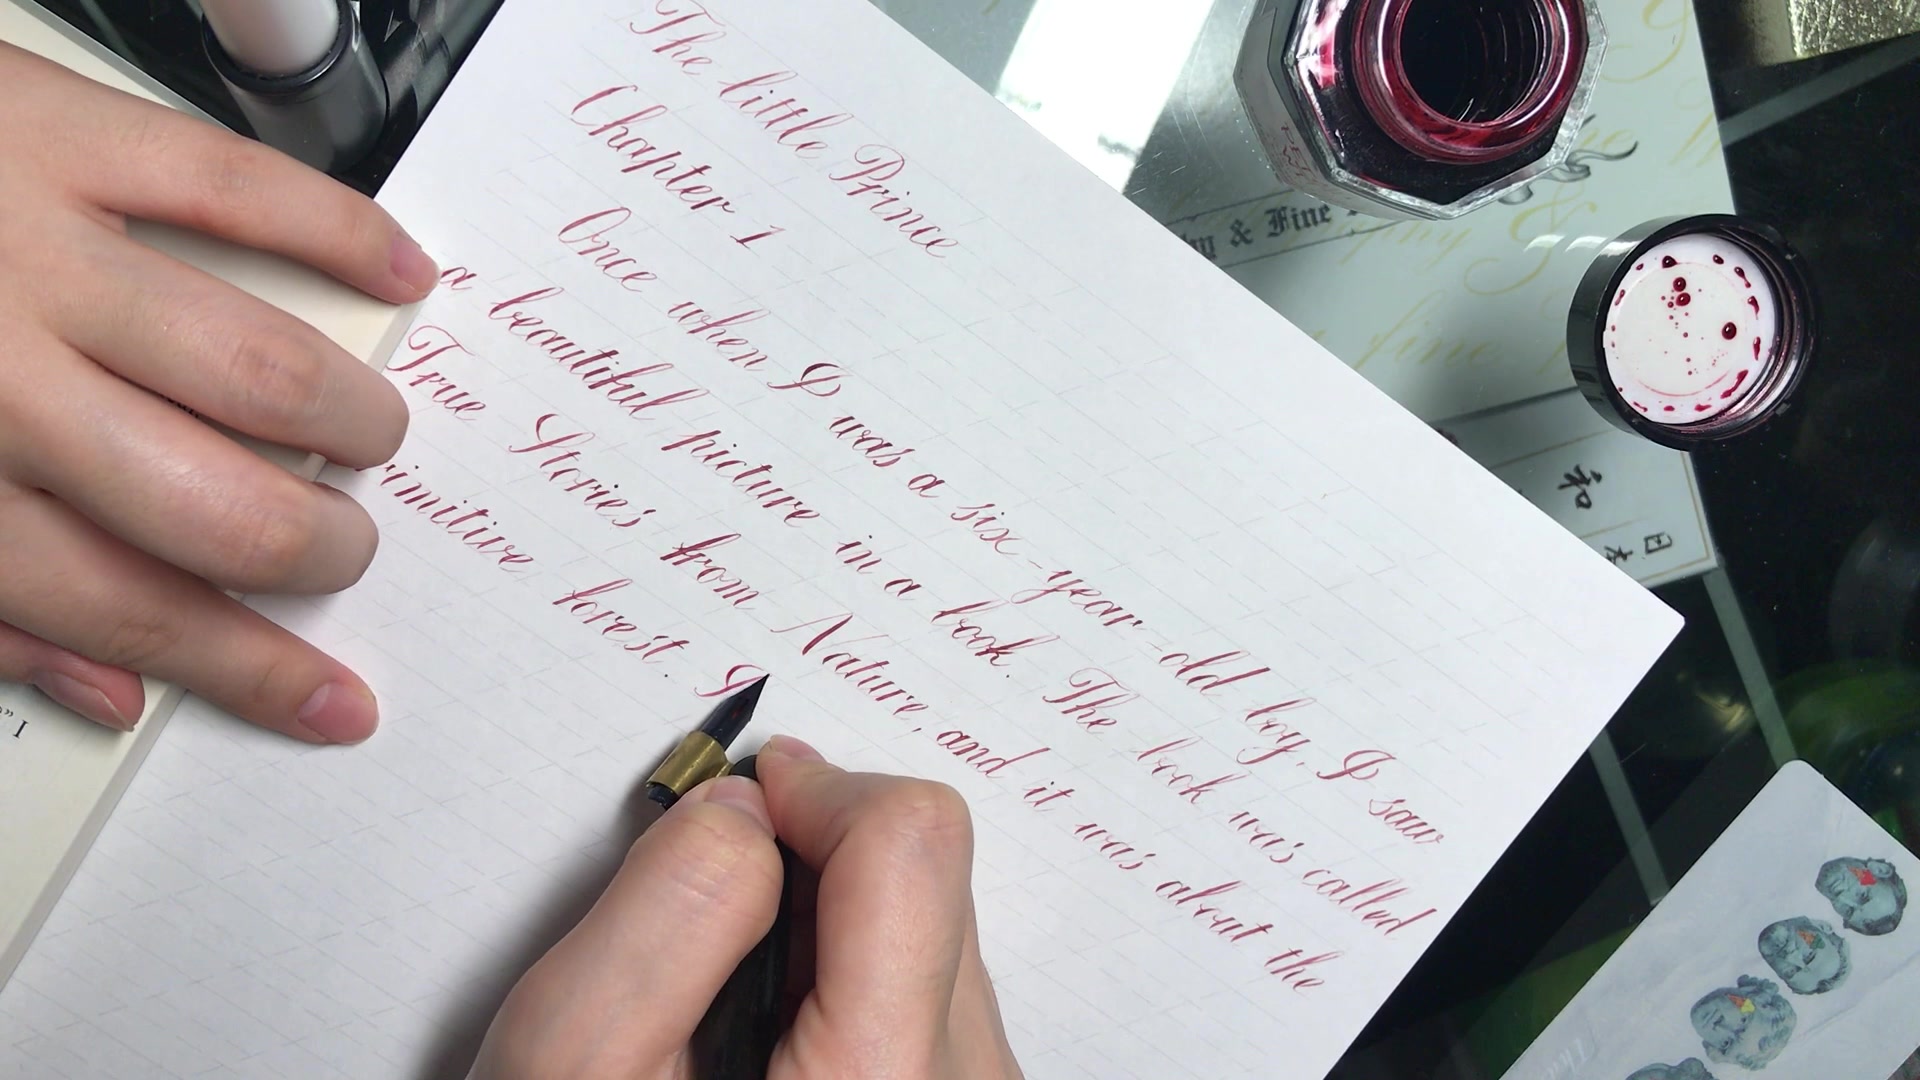 The little Prince
Chapter 1
Once when I was a six-year-old boy, I saw
a beautiful picture in a book. The book was called
True Stories from Nature, and it was about the
rimitive forest. I
& Fine
和
日
本